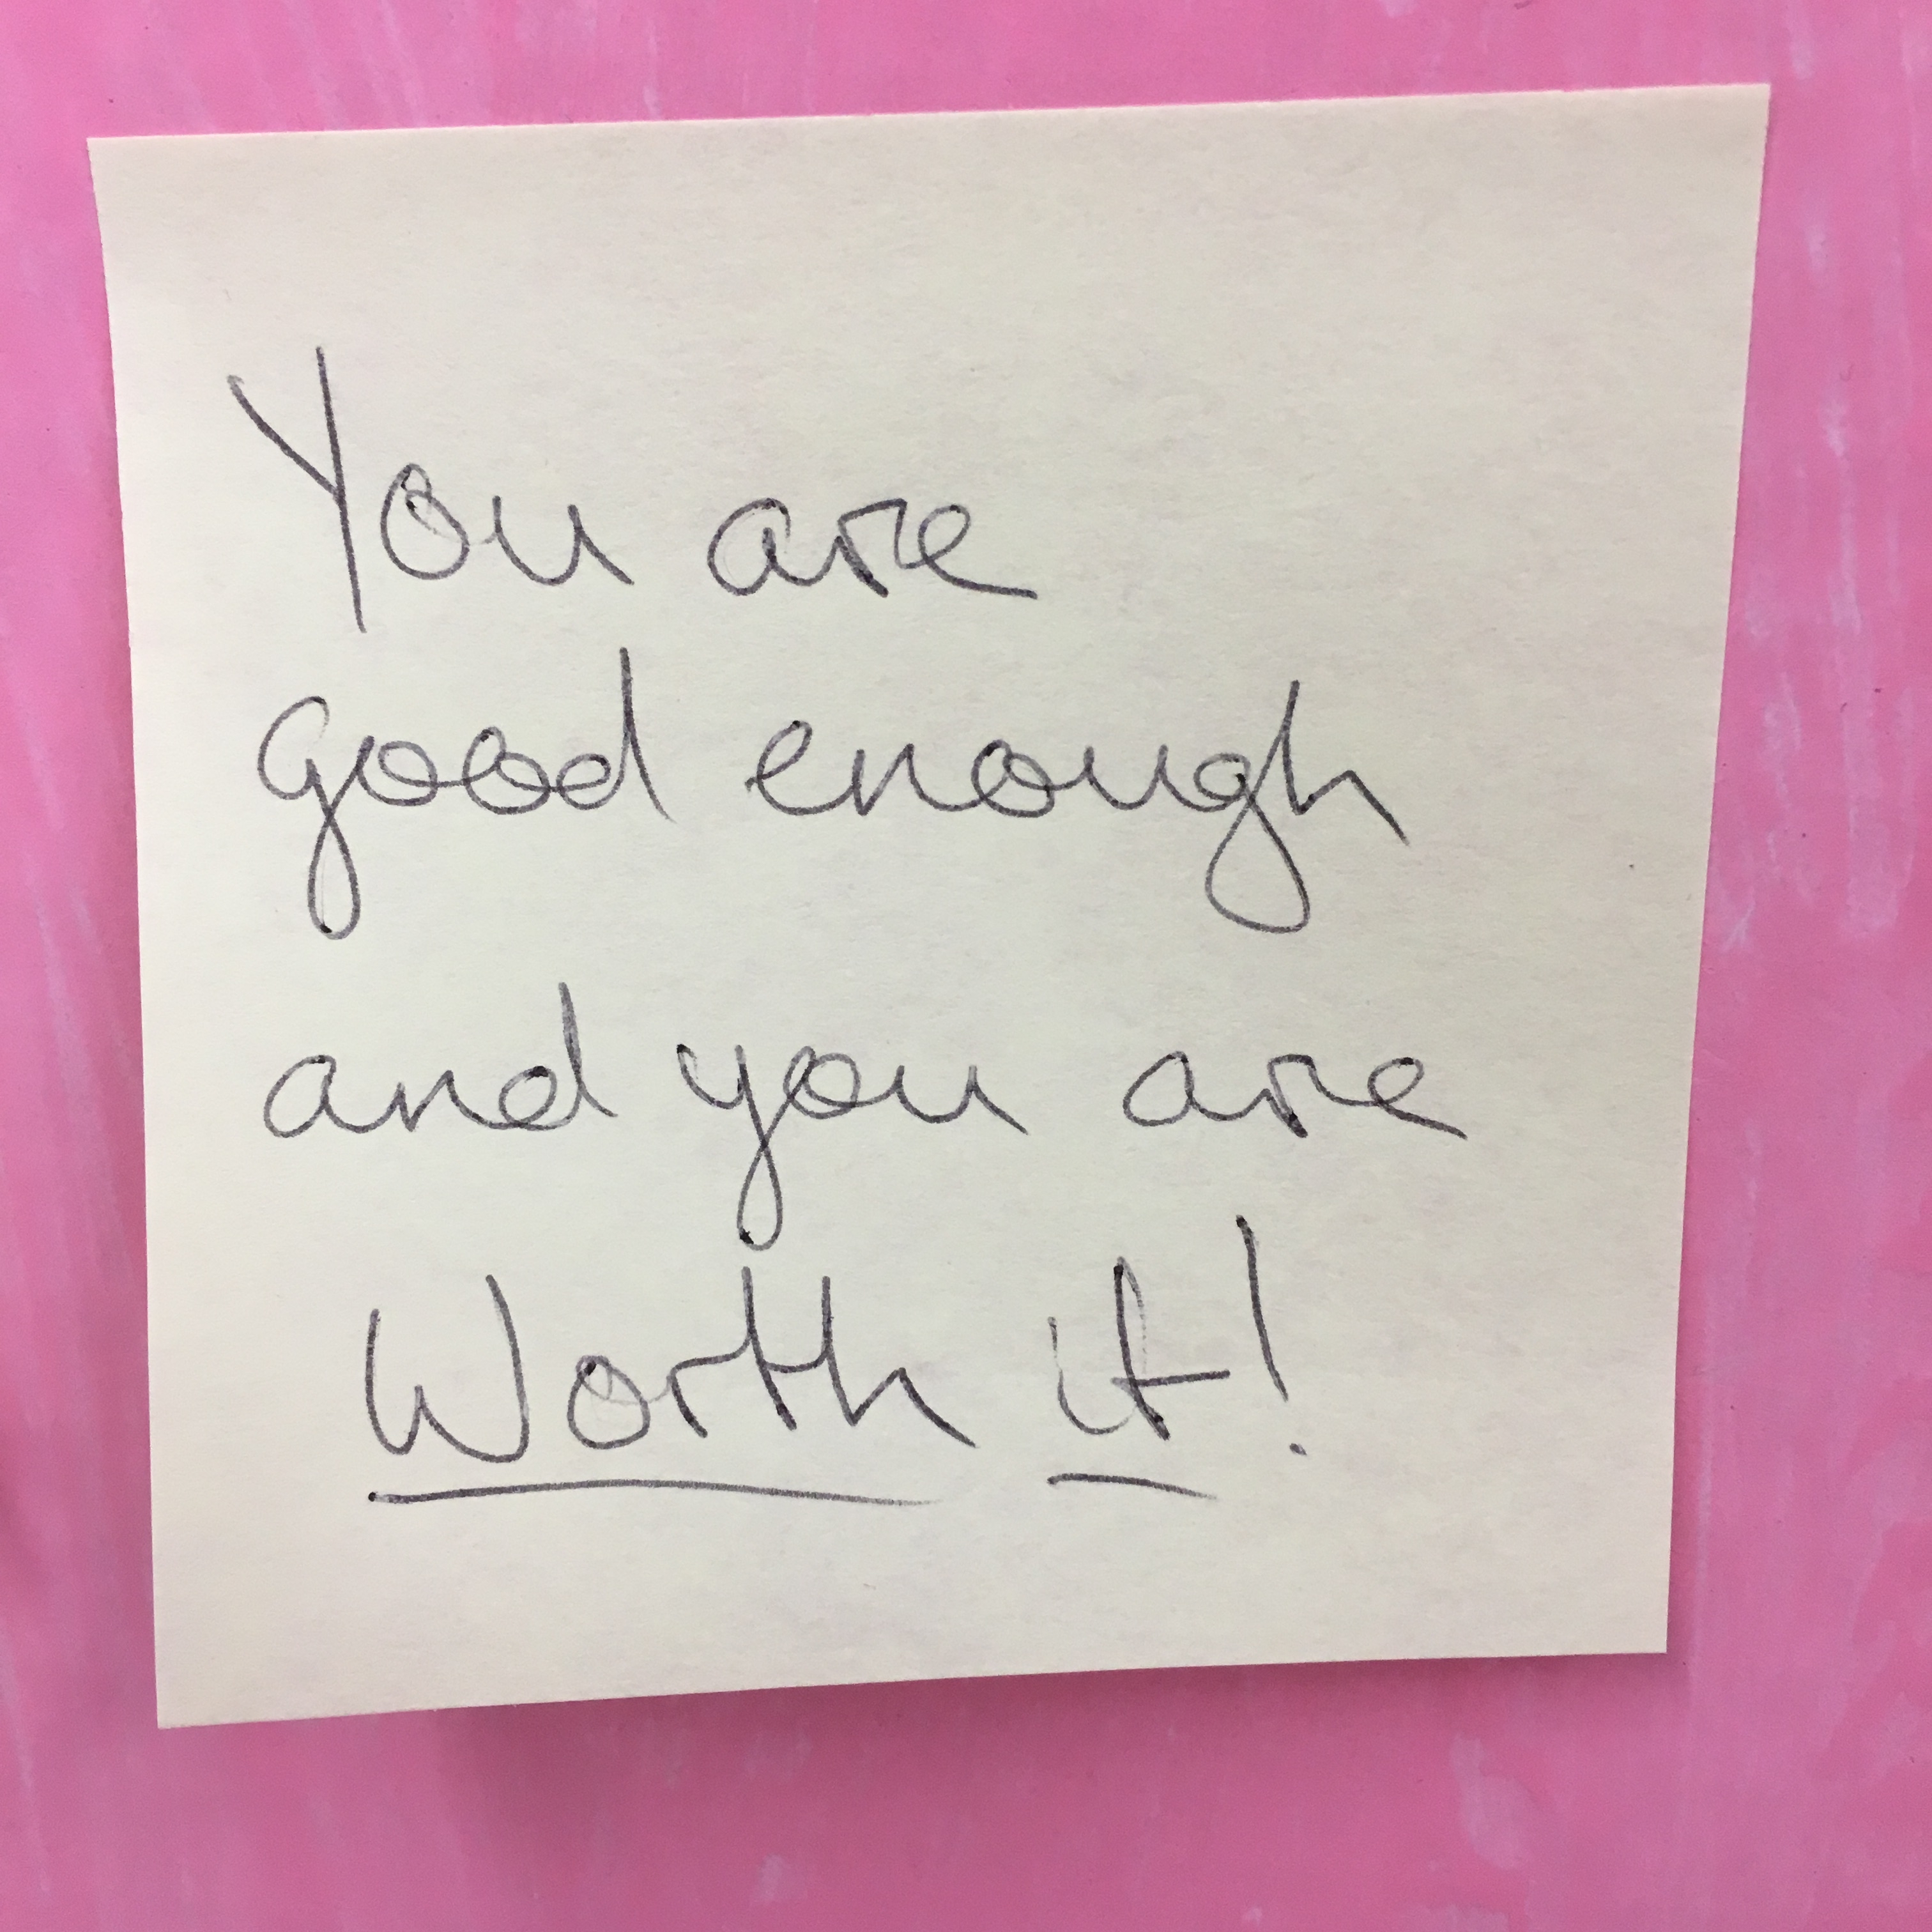 You are
good enough
and you are
Worth it!